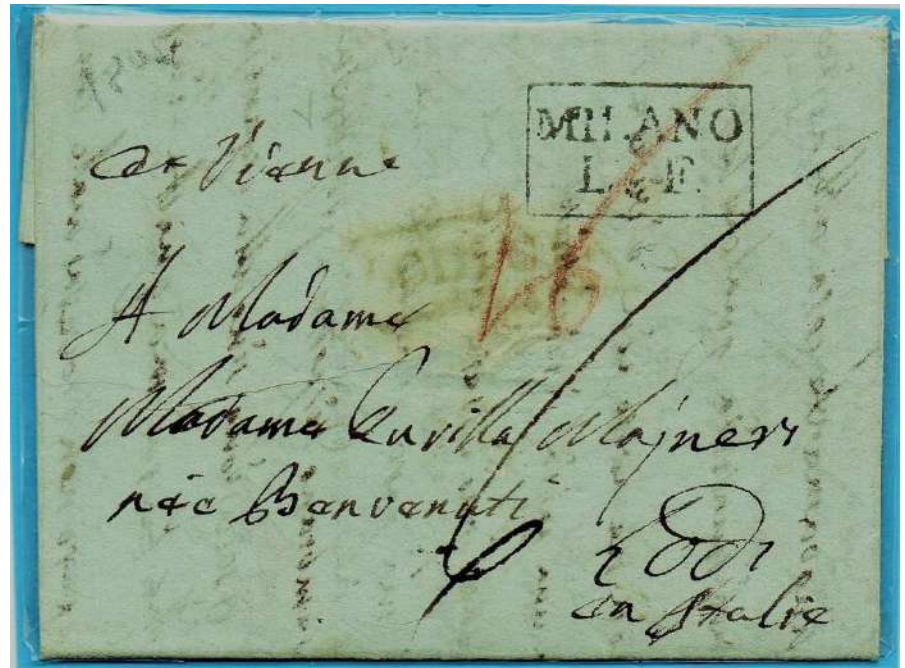 MILANO
L.F.
de Vienne
A Madame
Madame Camilla Majneri
née Benvenuti
Lodi
en Italie